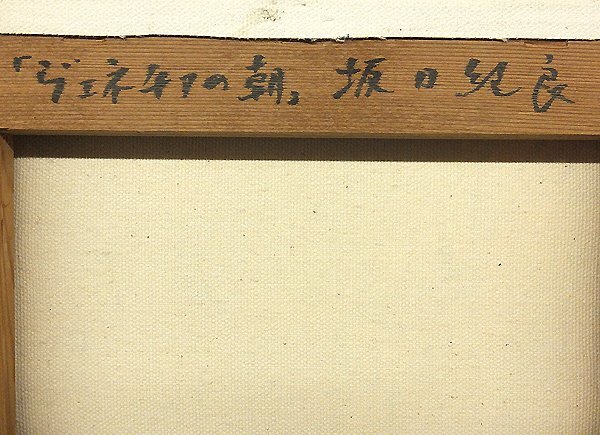 「ヴェネチアの朝」 坂口紀良